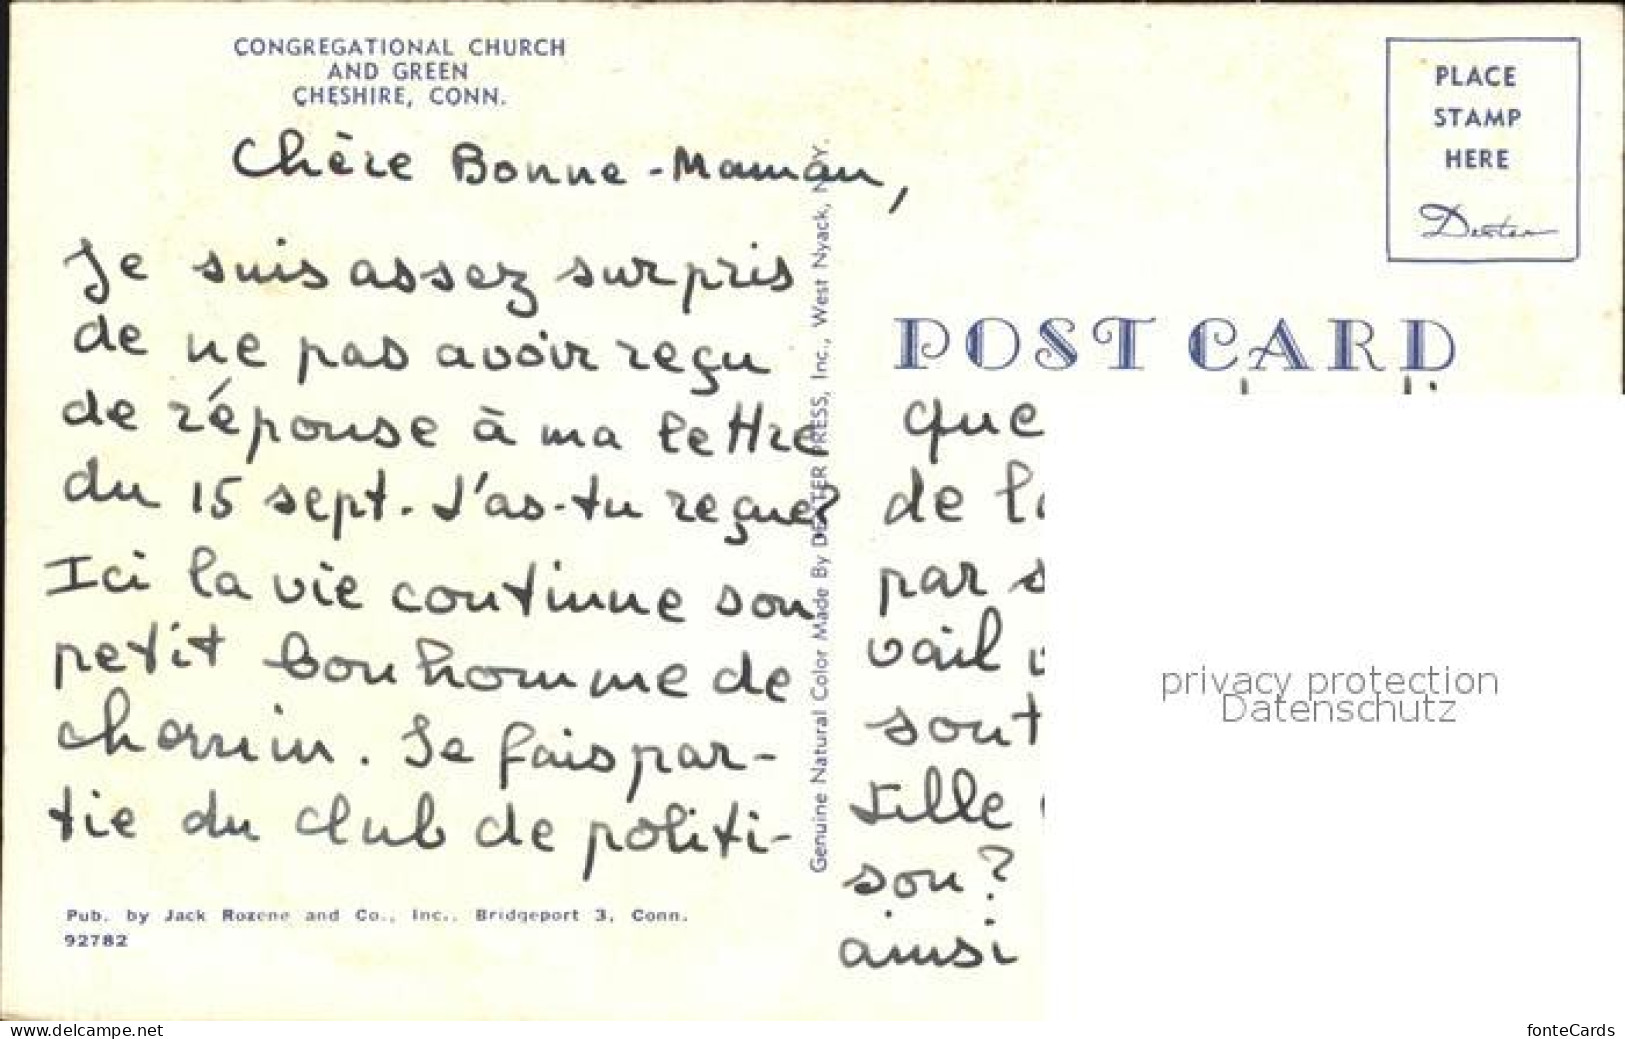 CONGREGATIONAL CHURCH
AND GREEN
CHESHIRE, CONN.
Chère Bonne-Maman,
Je suis assez surpris
de ne pas avoir reçu
de réponse à ma lettre
du 15 sept. L'as-tu reçue?
Ici la vie continue son
petit bonhomme de
chemin. Je fais par-
tie du club de politi-
Pub. by Jack Rozene and Co., Inc., Bridgeport 3, Conn.
92782
Genuine Natural Color Made By DEXTER PRESS, Inc., West Nyack, N.Y.
PLACE
STAMP
HERE
Dexter
POST CARD
que
de
par
vail
sont
son?
ainsi
privacy protection
Datenschutz
www.delcampe.net
fonteCards